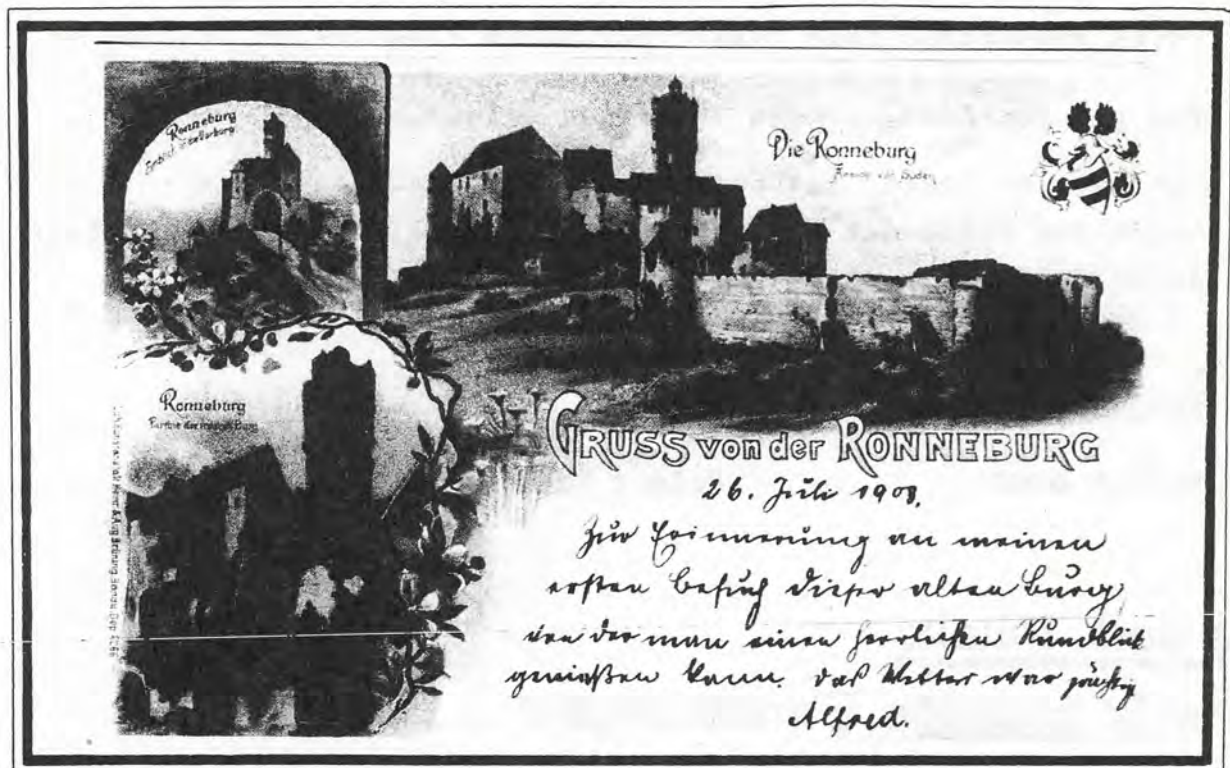 Ronneburg
Die Ronneburg
Ansicht von Süden
Ronneburg
Partie der inneren Burg
GRUSS von der RONNEBURG
26. Juli 1908.
Zur Erinnerung an meinen
ersten Besuch dieser alten Burg,
von der man einen herrlichen Rundblick
genießen kann. Das Wetter war prächtig
Alfred.